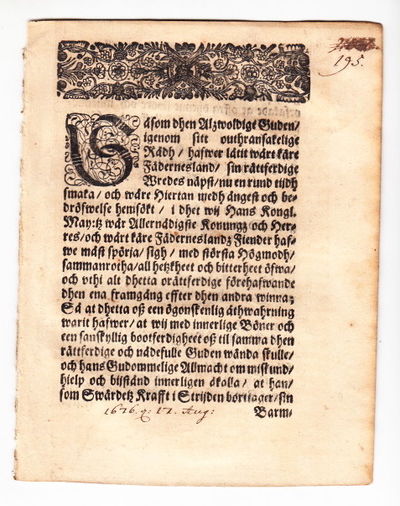 195.
Såsom dhen Alzwoldige Guden/
igenom sitt outhransakelige
Rådh/ hafwer låtit wåre käre
Fädernesland/ sin rättferdige
Wredes näpst/ nu en rund tijdh
smaka/ och wåre Hiertan medh ångest och be-
dröfwelse hemsökt/ i dhet wij Hans Kongl.
May:tz wår Allernådigste Konungz och Her-
res/ och wårt käre Fäderneslandz Fiender haf-
we måst spörja/ sigh/ med största Högmodh/
sammanrotha/ all hetzkheet och bitterheet öfwa/
och vthi alt dhetta orättferdige förehafwande
dhen ena framgång effter dhen andra winna;
Så at dhetta oß een ögonskenlig åthwahrning
warit hafwer/ at wij med innerlige Böner och
een sanskyllig bootferdigheet oß til samma dhen
rättferdige och nådefulle Guden wända skulle/
och hans Gudommelige Allmacht om miskund/
hielp och bijstånd innerligen åkalla/ at han/
som Swärdetz Krafft i Strijden borttager/ sin
1676. d: 11. Aug:
Barm-